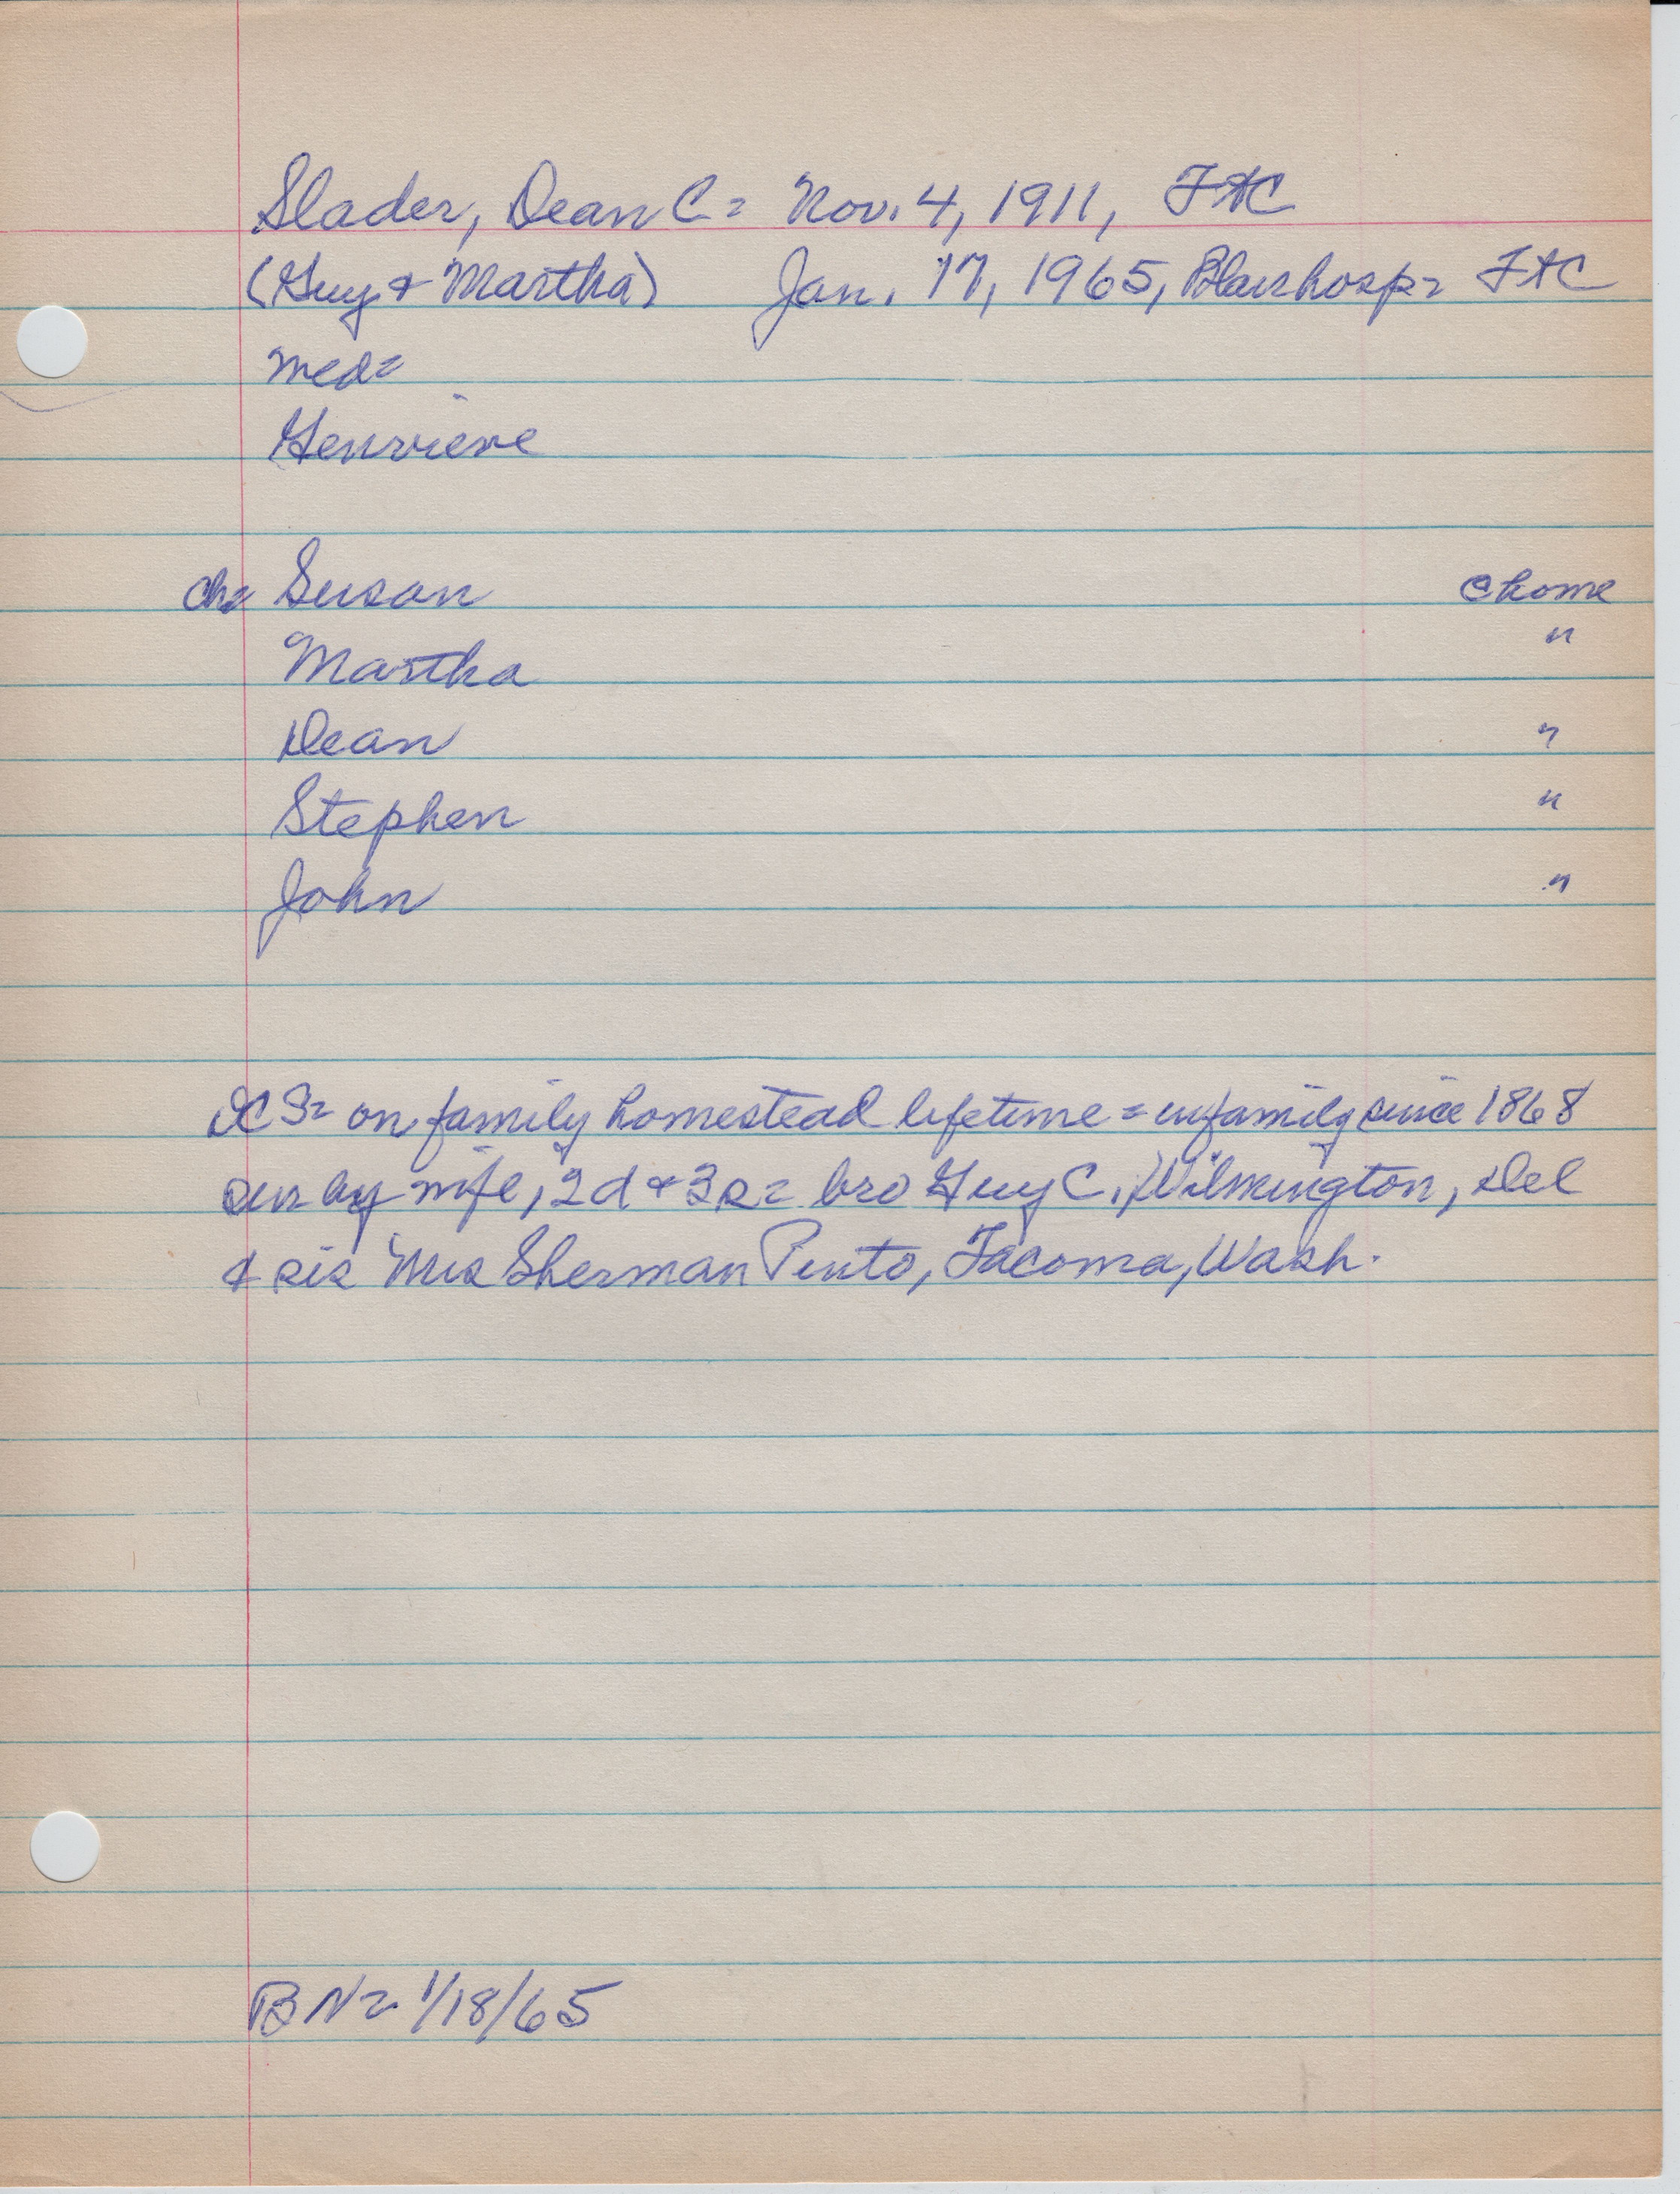 Slader, Dean C = Nov. 4, 1911, FtC
(Guy & Martha) Jan. 17, 1965, Blair hosp = FtC
med =
Genvieve
ch = Susan @ home
Martha "
Dean "
Stephen "
John "
DCS = on family homestead lifetime = in family since 1868
sur by wife, 2 d & 3 s = bro Guy C., Wilmington, Del
& sis Mrs Sherman Pinto, Tacoma, Wash.
BN = 1/18/65